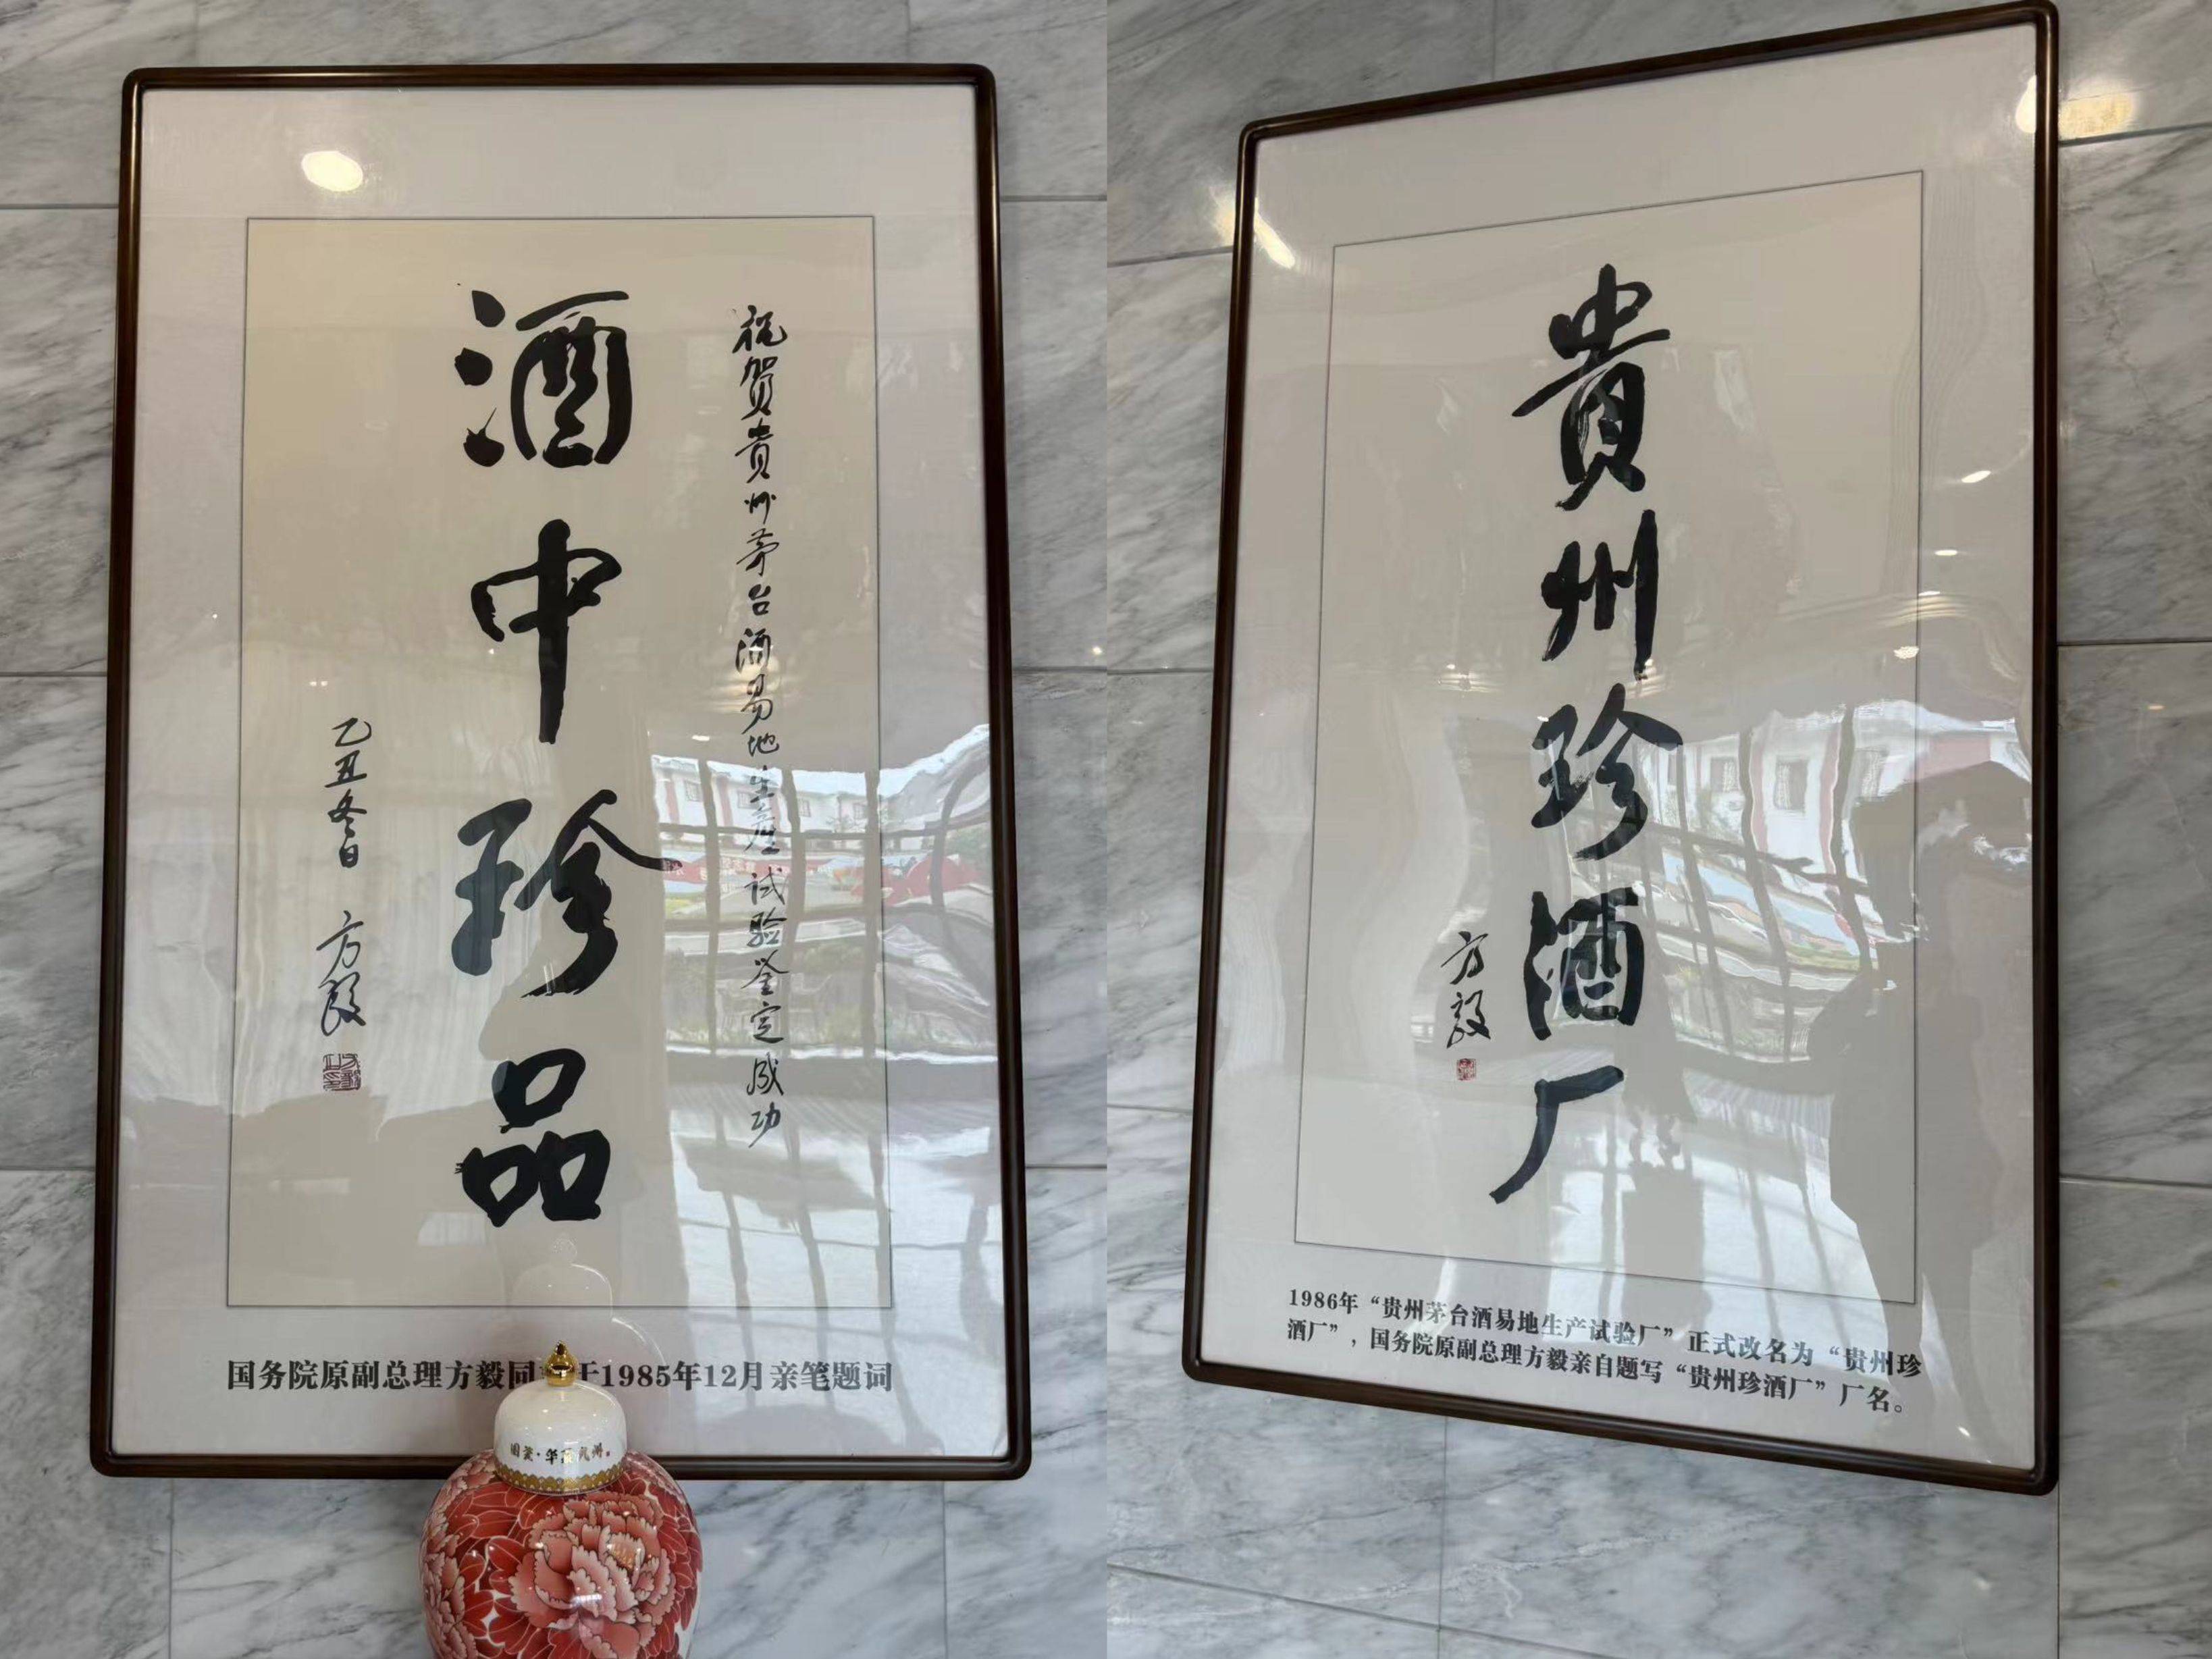 祝贺贵州茅台酒易地生产试验鉴定成功
酒中珍品
乙丑冬日 方毅
国务院原副总理方毅同 于1985年12月亲笔题词
貴州珍酒厂
方毅
1986年“贵州茅台酒易地生产试验厂”正式改名为“贵州珍
酒厂”，国务院原副总理方毅亲自题写“贵州珍酒厂”厂名。